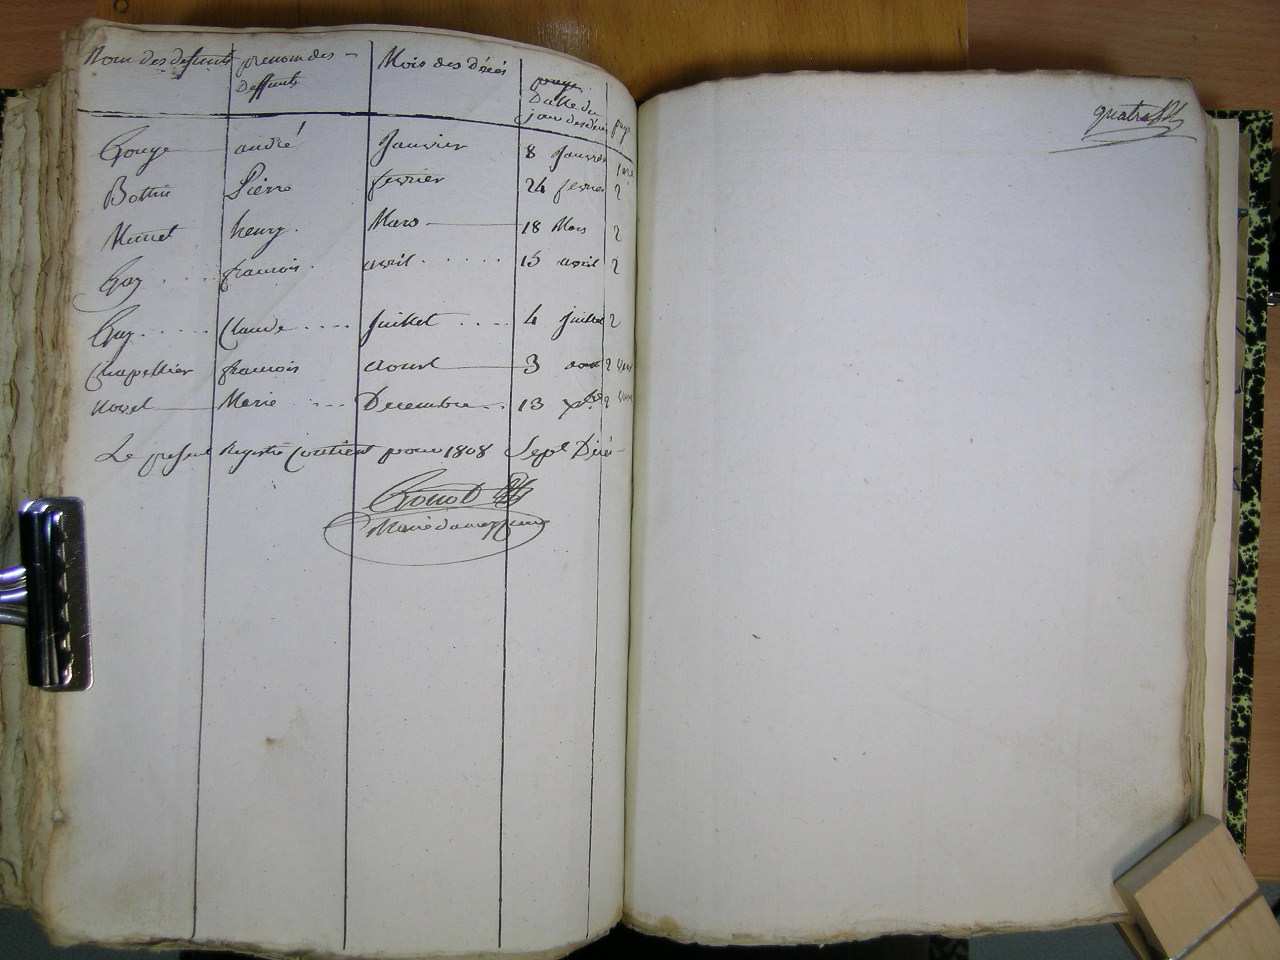 Nom des deffunts prenom des Deffunts Mois des Décés Datte du jour des décès page
Rouge andré Janvier 8 Janvier 1ere
Bottin Pierre fevrier 24 fevrier 2
Minet henry Mars 18 Mars 2
Gay francois avril 15 avril 2
Gay Claude Juillet 4 Juillet 2
Chapellier francois aoust 3 aout 2
Morel Marie Decembre 13 Xbre 2
Le présent Registre Contient pour 1808 Sept Décé-
quatre